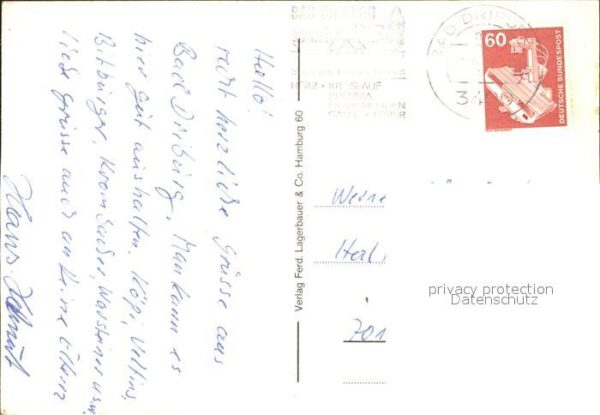 Hallo!
recht herzliche Grüsse aus
Bad Driburg. Man kann es
hier gut aushalten. Köpi, Veltins,
Bitburger, Krombacher, Warsteiner usw.
liebe Grüsse auch an Deine Eltern
Hans
Verlag Ferd. Lagerbauer & Co. Hamburg 60
BAD DRIBURG
HERZ • KREISLAUF
RHEUMA
60
DEUTSCHE BUNDESPOST
Werne
Herl
701
privacy protection
Datenschutz